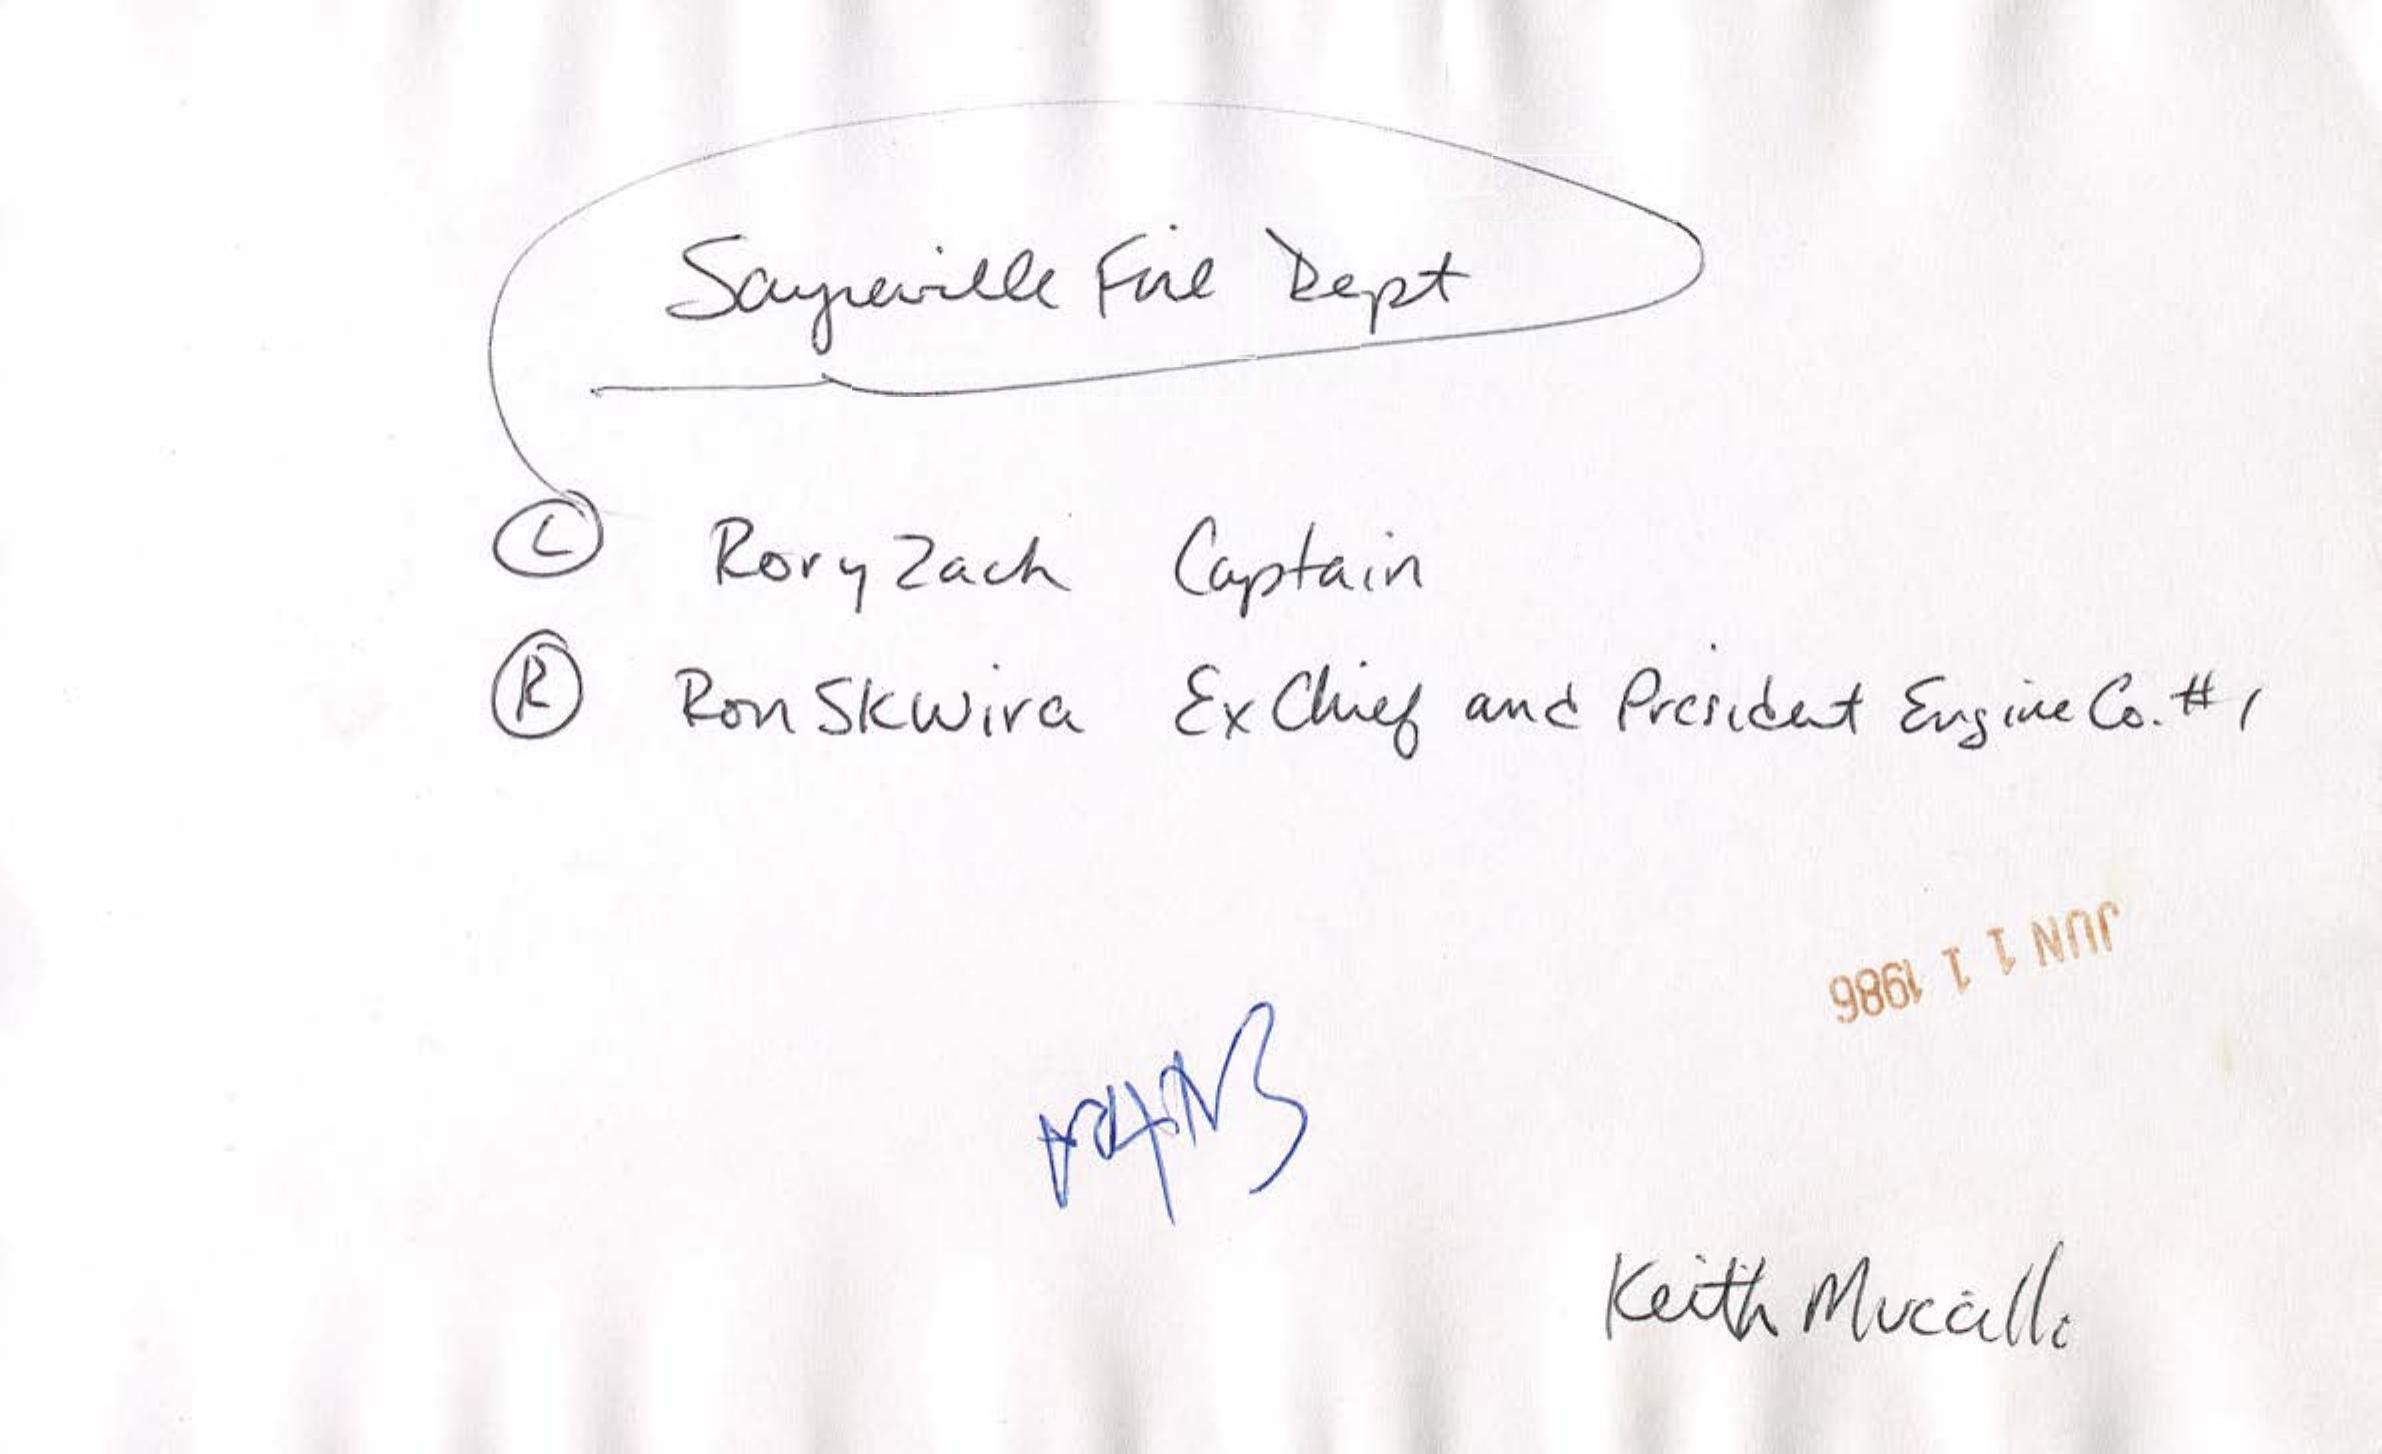 Sayreville Fire Dept
L Rory Zach Captain
R Ron Skwira Ex Chief and President Engine Co. #1
JUN 11 1986
Keith Muccilli